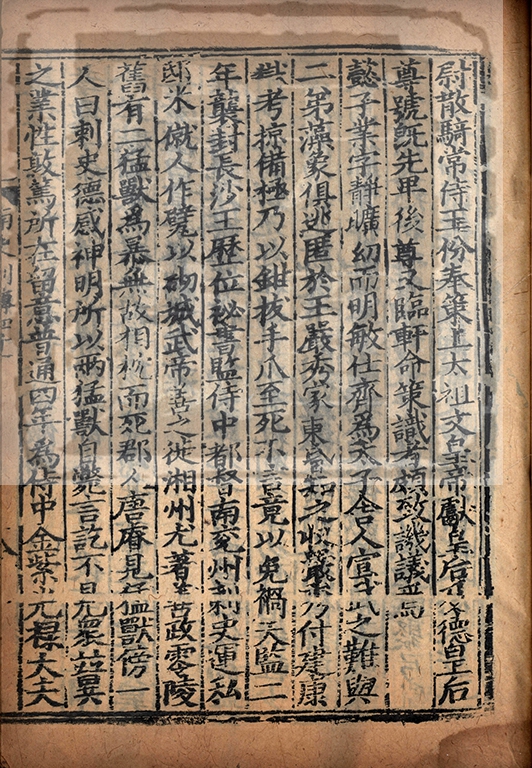 尉散騎常侍王份奉策上太祖文皇帝獻皇后及德皇后
尊號既先卑後尊又臨軒命策識者頗致譏議焉
懿子業字靜曠幼而明敏仕齊為太子舍人宣武之難與
二弟藻象俱逃匿於王嚴秀家東昏知之收嚴秀付建康
獄考掠備極乃以鉗拔手爪至死不言竟以免禍天監二
年襲封長沙王歷位秘書監侍中都督南兗州刺史運私
邸米僦人作甓以砌城武帝善之徙湘州尤著善政零陵
舊有二猛獸為暴無故相枕而死郡人唐睿見猛獸傍一
人曰刺史德感神明所以兩猛獸自斃言訖不見衆並異
之業性敦篤所在留意普通四年為侍中金紫光祿大夫